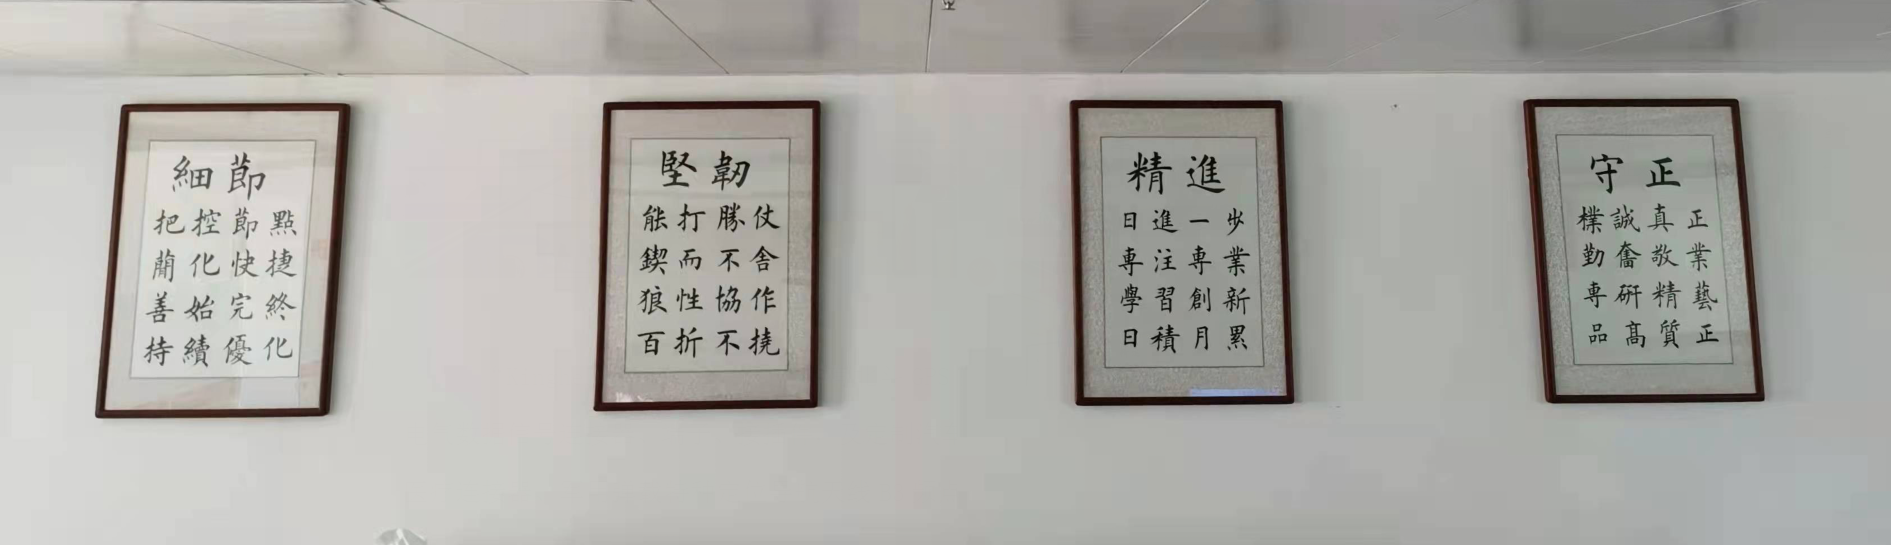 細節
把控節點
蕑化快捷
善始完終
持續優化
堅韌
能打勝仗
鍥而不舍
狼性協作
百折不撓
精進
日進一步
專注專業
學習創新
日積月累
守正
樸誠真正
勤奮敬業
專研精藝
品高質正